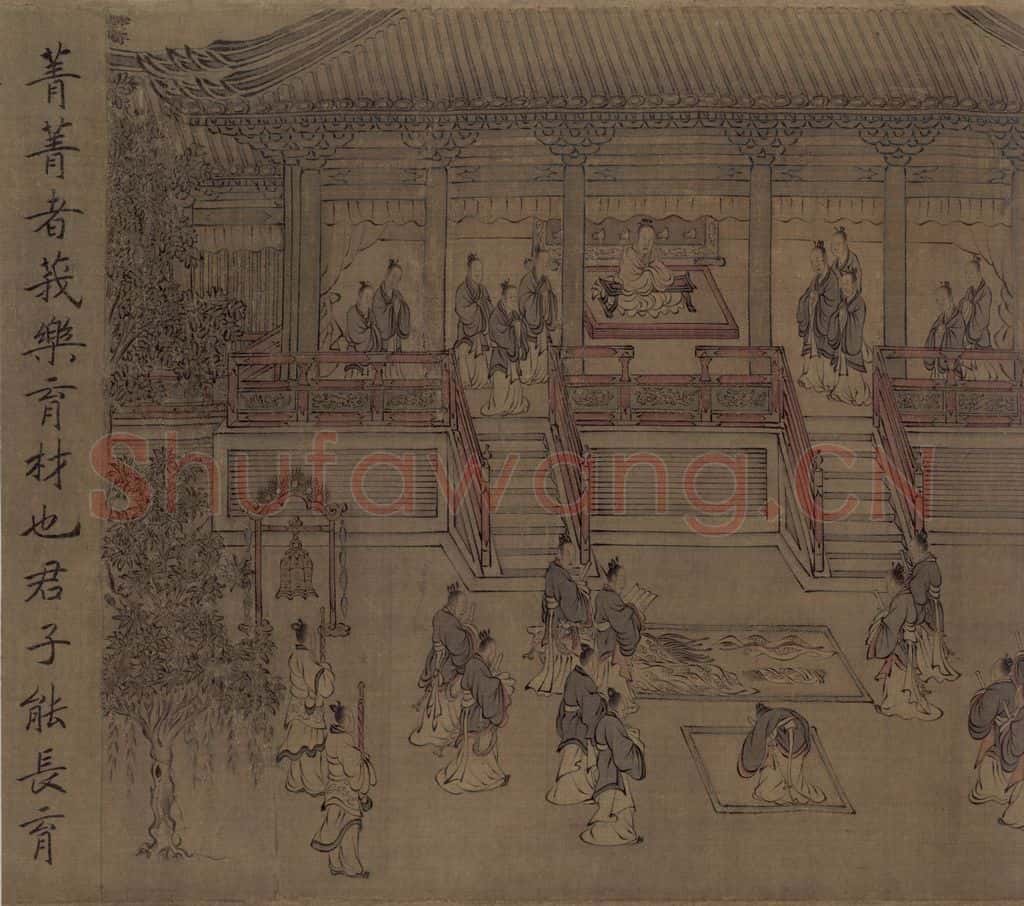 菁菁者莪樂育材也君子能長育
Shufawang.CN